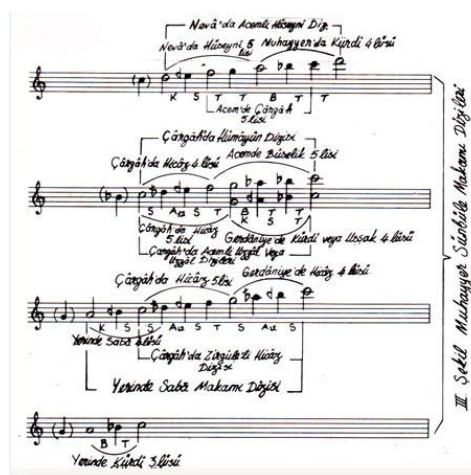 Nevâ'da Acemli Hüseyni Diz.
Nevâ'da Hüseyni 5 lisi
Muhayyer'da Kürdi 4 lüsü
K S T T B T T
Acem'de Çârgâh 5 lisi
Çârgâh'da Hümâyûn Dizisi
Çârgâh'da Hicâz 4 lüsü
Acemde Bûselik 5 lisi
S A₁₂ S T B T T
K S T
Çârgâh'da Hicâz 5 lisi
Gerdâniye'de Kürdi veya Uşşak 4 lüsü
Çârgâh'da Acemli Uzzâl Veya Uzzâl Dizileri
Çârgâh'da Hicâz 5 lisi
Gerdâniye'de Hicâz 4 lüsü
K S S A₁₂ S T S A₁₂ S
Yerinde Sabâ 4 lüsü
Çârgâh'da Zirgüleli Hicâz Dizisi
Yerinde Sabâ Makamı Dizisi
B T
Yerinde Kürdi 3 lüsü
III Şekil Muhayyer Sünbüle Makamı Dizileri